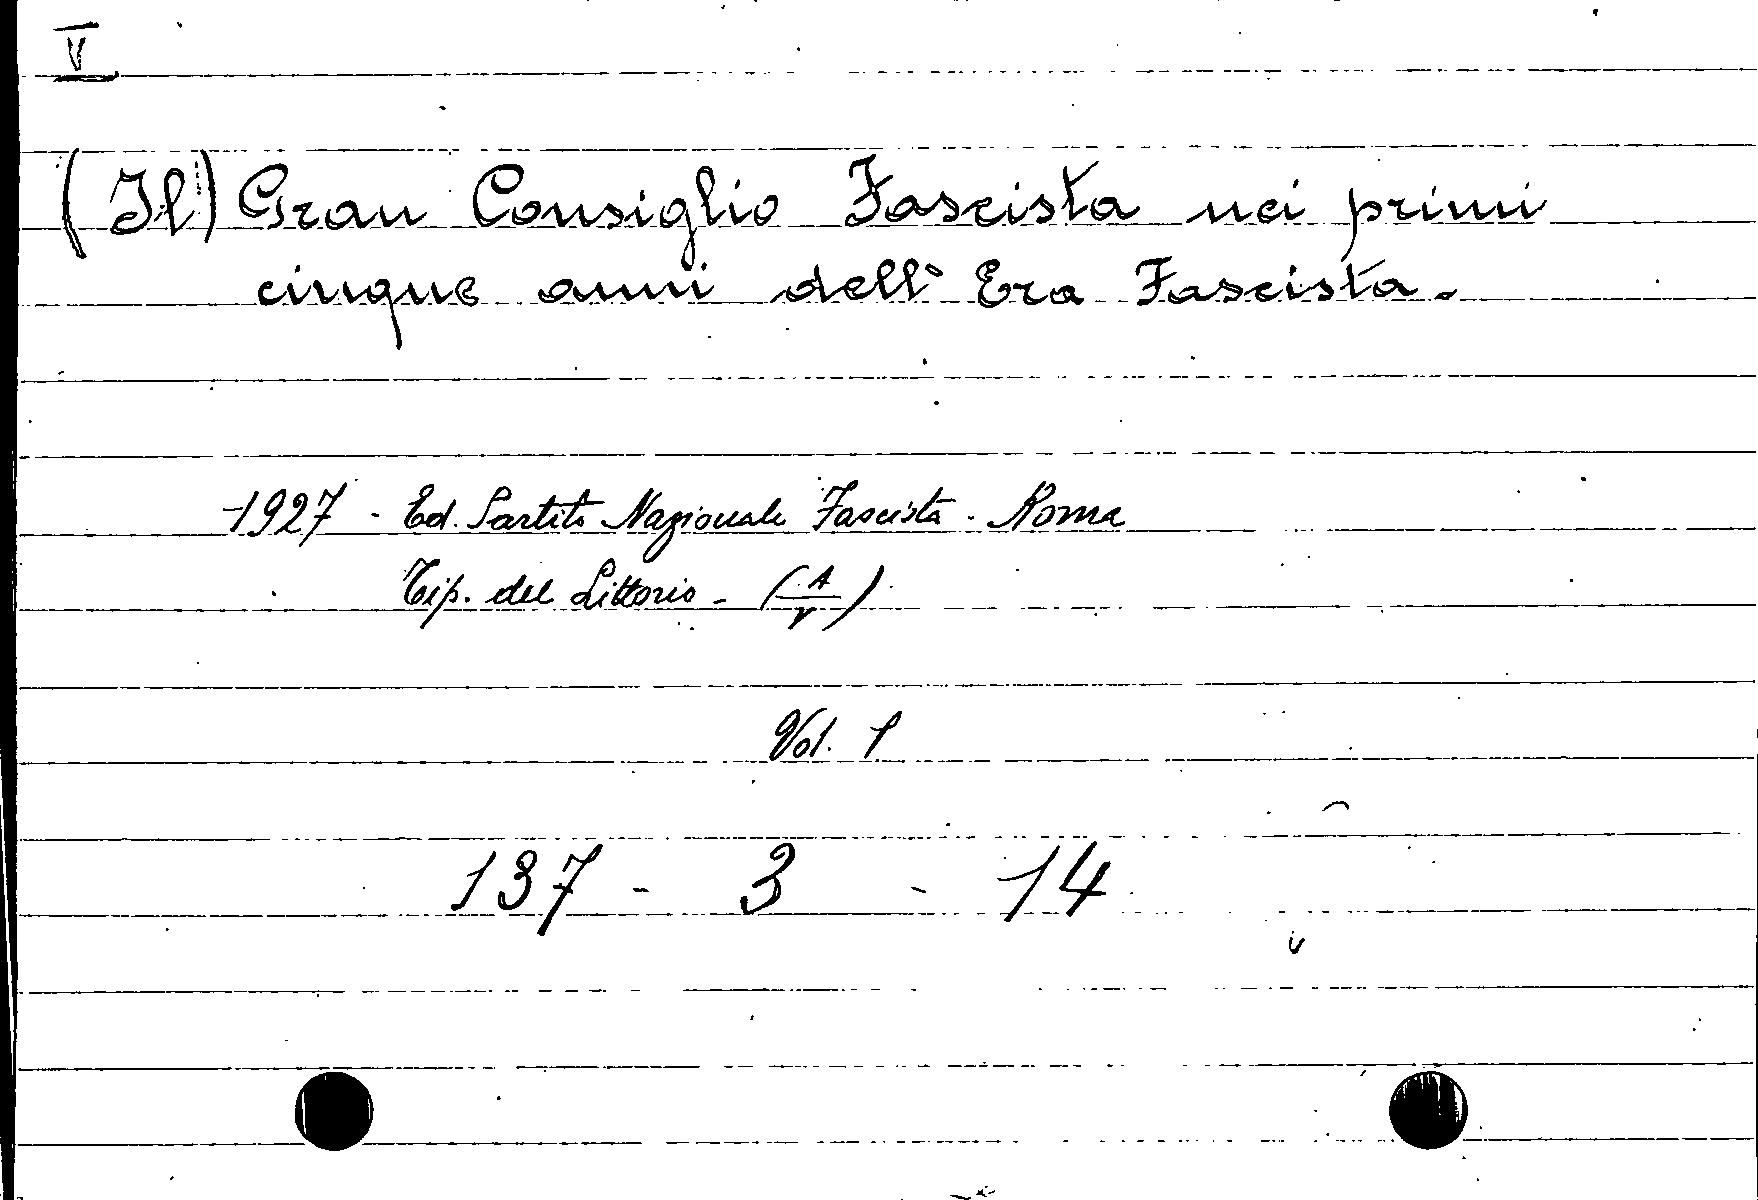 V
(Il) Gran Consiglio Fascista nei primi
cinque anni dell' Era Fascista.
1927 - Ed. Partito Nazionale Fascista - Roma
Tip. del Littorio - (A/V)
Vol. 1
137 - 3 - 14